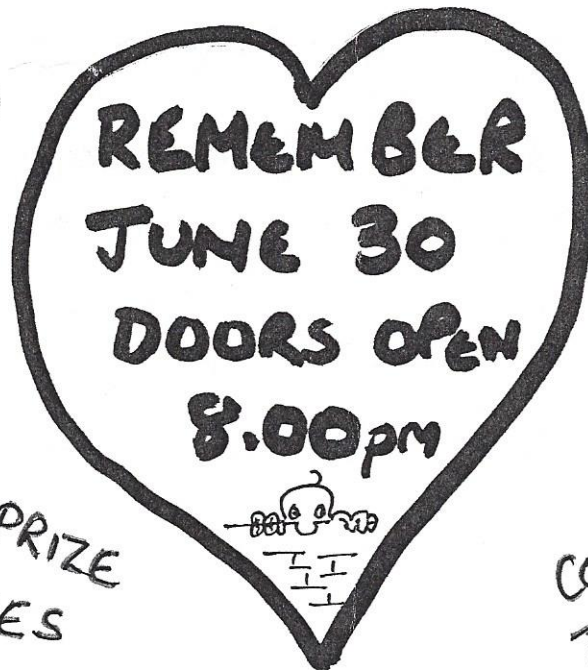 REMEMBER
JUNE 30
DOORS OPEN
8.00pm
PRIZE